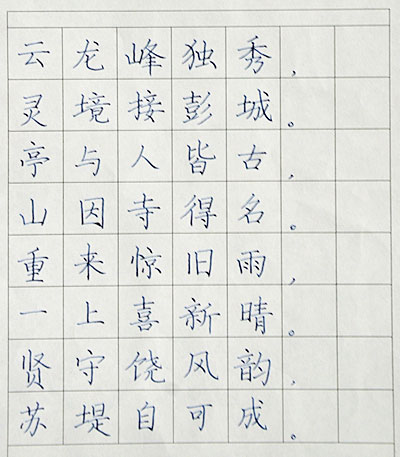 云龙峰独秀，
灵境接彭城。
亭与人皆古，
山因寺得名。
重来惊旧雨，
一上喜新晴。
贤守饶风韵，
苏堤自可成。